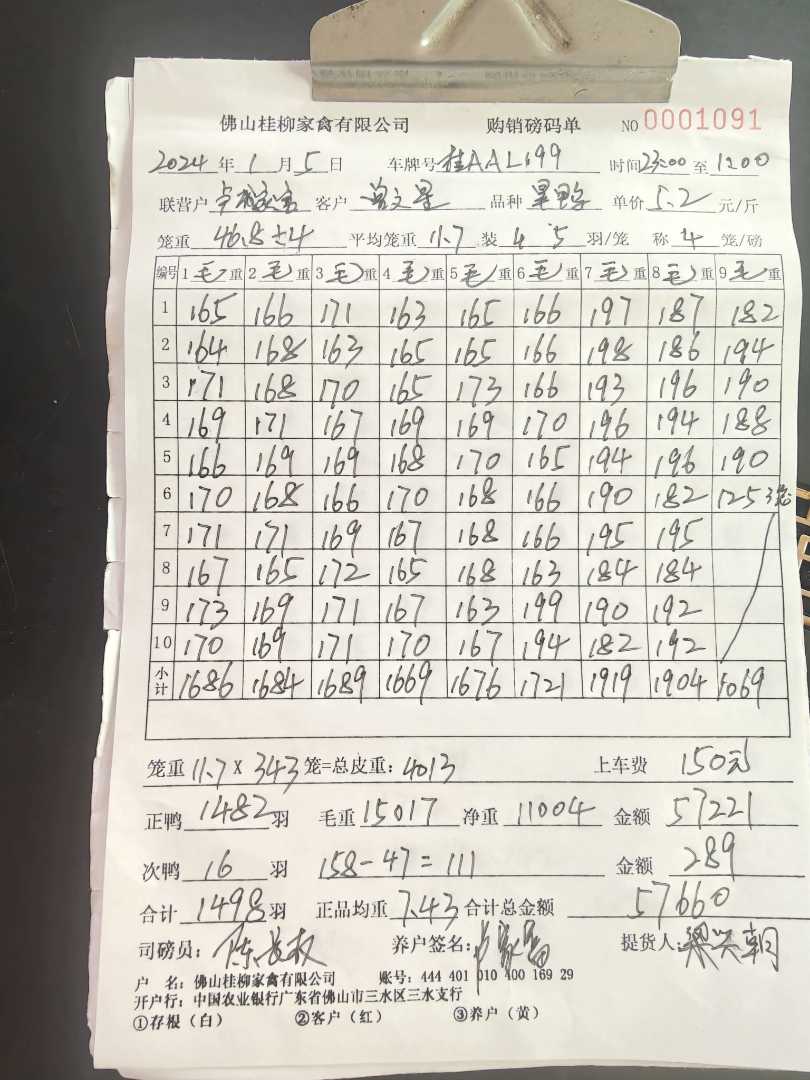 佛山桂柳家禽有限公司 购销磅码单 NO 0001091
2024 年 1 月 5 日 车牌号 桂AAL699 时间 23:00 至 1200
联营户 客户 曾文星 品种 单价 5.2 元/斤
笼重 46.8 ± 4 平均笼重 11.7 装 4 5 羽/笼 称 4 笼/磅
编号 1 毛 重 2 毛 重 3 毛 重 4 毛 重 5 毛 重 6 毛 重 7 毛 重 8 毛 重 9 毛 重
1 165 166 171 163 165 166 197 187 182
2 164 168 163 165 165 166 198 186 194
3 171 168 170 165 173 166 193 196 190
4 169 171 167 169 169 170 196 194 188
5 166 169 169 168 170 165 194 196 190
6 170 168 166 170 168 166 190 182 125 3笼
7 171 171 169 167 168 166 195 195
8 167 165 172 165 168 163 184 184
9 173 169 171 167 163 199 190 192
10 170 169 171 170 167 194 182 192
小计 1686 1684 1689 1669 1676 1721 1919 1904 1069
笼重 11.7 X 343 笼=总皮重: 4013 上车费 150元
正鸭 1482 羽 毛重 15017 净重 11004 金额 57221
次鸭 16 羽 158-47=111 金额 289
合计 1498 羽 正品均重 7.43 合计总金额 57660
司磅员: 养户签名: 提货人:
户 名: 佛山桂柳家禽有限公司 账号: 444 401 010 400 169 29
开户行: 中国农业银行广东省佛山市三水区三水支行
①存根（白） ②客户（红） ③养户（黄）